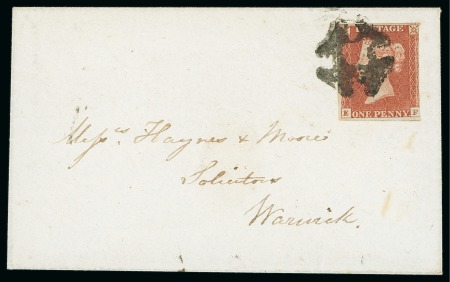 POSTAGE
ONE PENNY
E F
Messrs Haynes & Moore
Solicitors
Warwick.